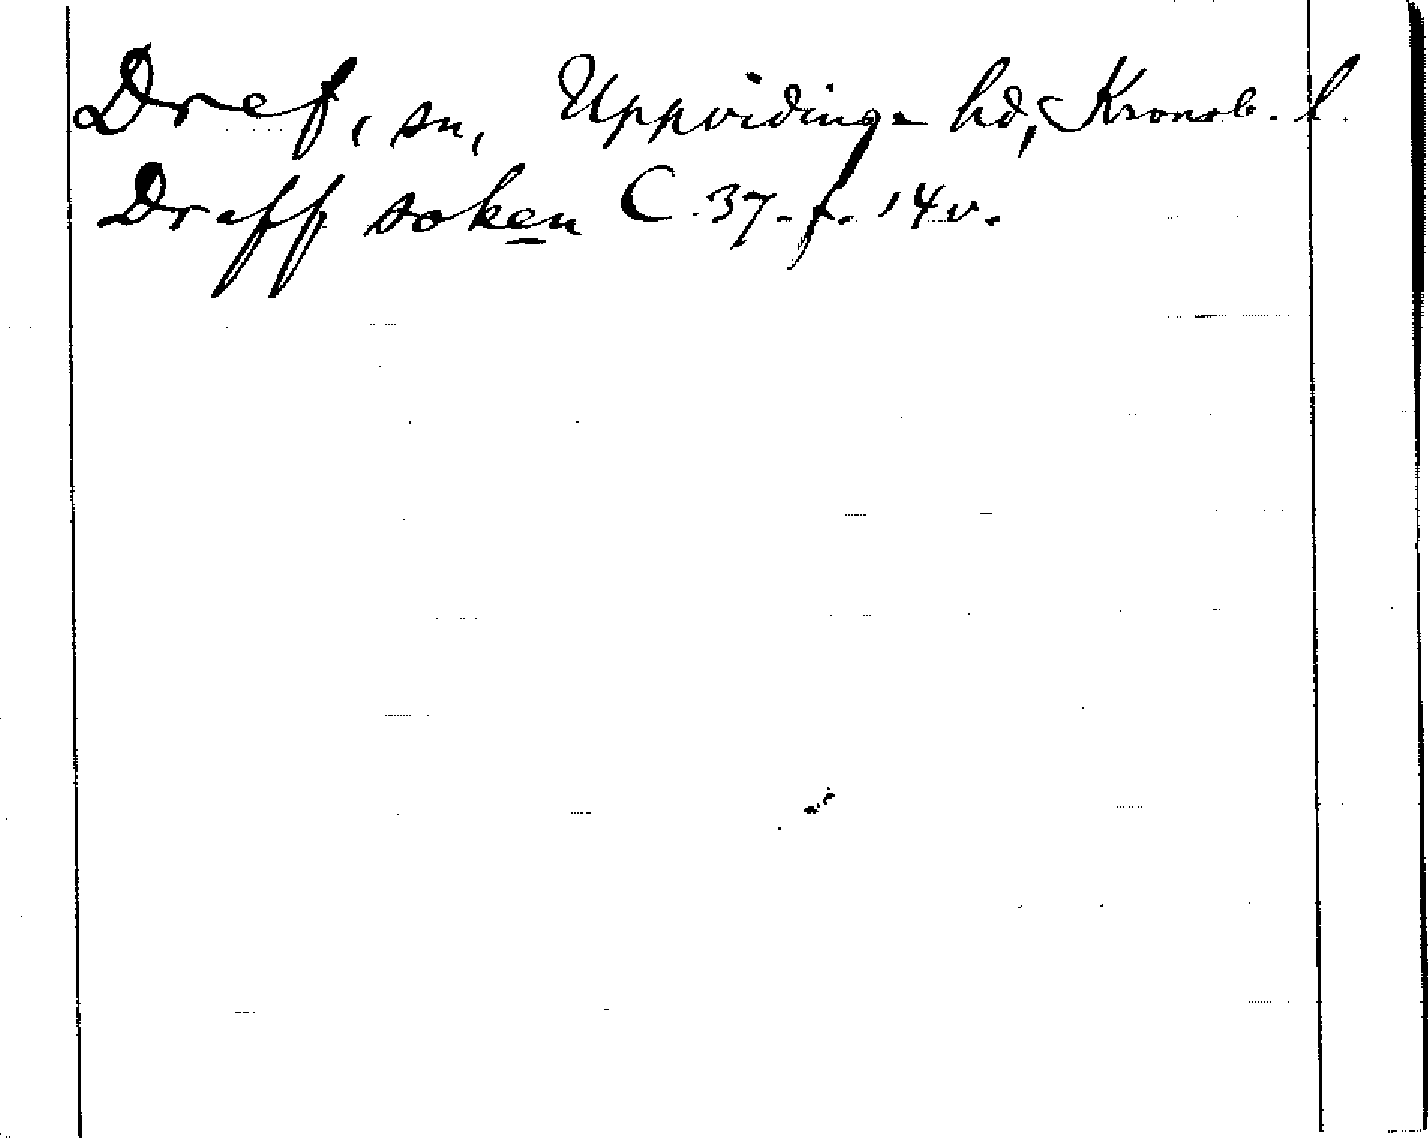 Dref, sn, Uppvidinge hd, Kronob. l.
Draff soken C 37. f. 14v.